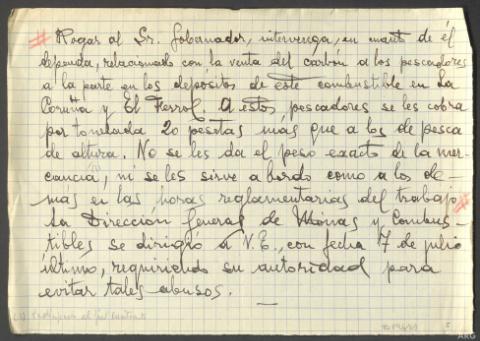 # Rogar al Sr. Gobernador, intervenga, en cuanto de él
dependa, relacionado con la venta del carbón a los pescadores
a la parte en los depósitos de este combustible en La
Coruña y El Ferrol. A estos pescadores se les cobra
por tonelada 20 pesetas más que a los de pesca
de altura. No se les da el peso exacto de la mer-
cancía, ni se les sirve a bordo como a los de-
más en las horas reglamentarias del trabajo #
La Direccion General de Minas y Combus-
tibles se dirigió a V.E., con fecha 7 de julio
último, requiriendo su autoridad para
evitar tales abusos. —
ARG